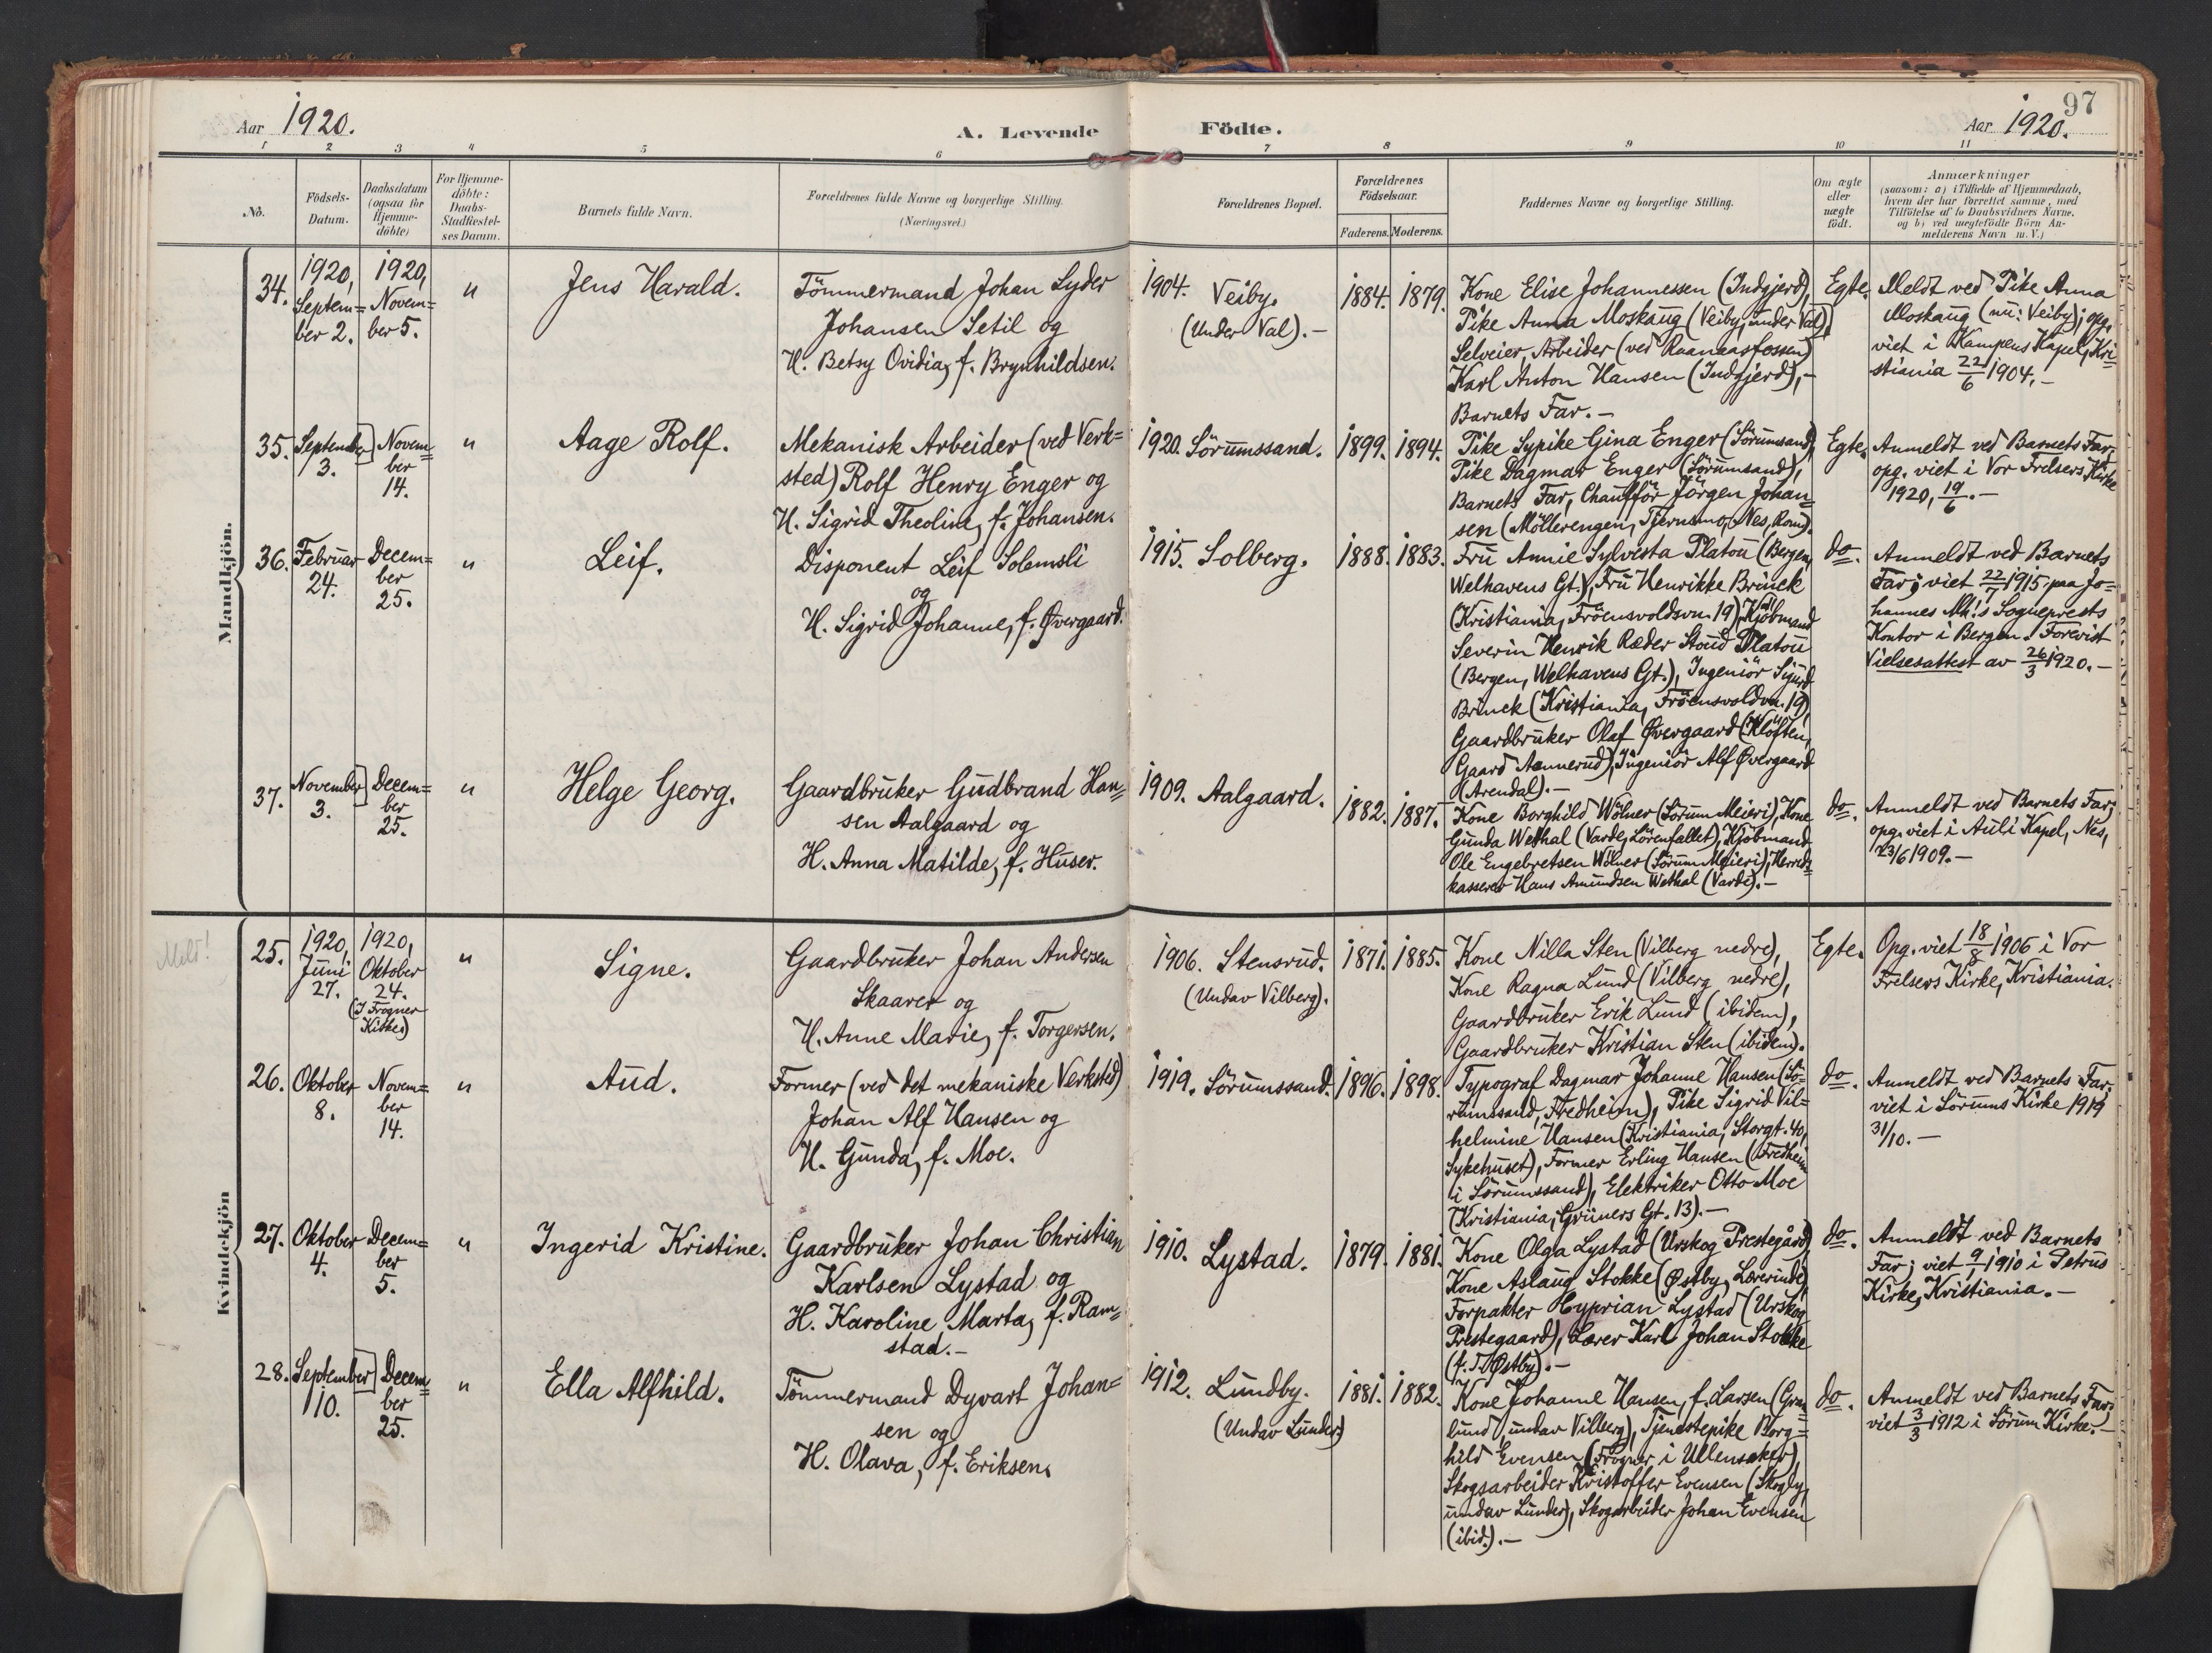 97
Aar 1920.
A. Levende Födte.
Aar 1920.
1 2 3 4 5 6 7 8 9 10 11
No.
Födsels-
Datum.
Daabsdatum
(ogsaa for
Hjemme-
döbte)
For Hjemme-
döbte:
Daabs-
Stadfæstel-
ses Datum.
Barnets fulde Navn.
Forældrenes fulde Navne og borgerlige Stilling.
(Næringsvei.)
Forældrenes Bopæl.
Forældrenes
Födselsaar.
Faderens. Moderens.
Faddernes Navne og borgerlige Stilling.
Om ægte
eller
uægte
födt.
Anmærkninger
(saasom: a) i Tilfælde af Hjemmedaab,
hvem der har forrettet samme, med
Tilföielse af to Daabsvidners Navne.
og b) ved uægtefödte Börn An-
melderens Navn m. V.)
Mandkjön.
34.
1920,
Septem=
ber 2.
1920,
Novem=
ber 5.
"
Jens Harald.
Tömmermand Johan Lyder
Johansen Setil og
H. Betsy Ovidia, f. Brynhildsen.
1904. Veiby.
(Under Val). —
1884. 1879.
Kone Elise Johannessen (Indgjerd),
Pike Anna Moskaug (Veiby, under Val),
Selveier, Arbeider (ved Raanaasfossen)
Karl Anton Hansen (Indgjerd), —
Barnets Far. —
Egte.
Meldt ved Pike Anna
Moskaug (nu: Veiby); opg.
viet i Kampens Kapel, Kri=
stiania 22/6 1904. —
35.
September
3.
Novem=
ber
14.
"
Aage Rolf.
Mekanisk Arbeider (ved Verk=
sted) Rolf Henry Enger og
H. Sigrid Theoline, f. Johansen.
1920. Sörumssand.
1899. 1894.
Pike Sypike Gina Enger (Sörumsand),
Pike Dagmar Enger (Sörumsand),
Barnets Far, Chaufför Jörgen Johan=
sen (Möllerengen, Tjernsmo, Nes, Rom).
Egte.
Anmeldt ved Barnets Far;
opg. viet i Vor Frelsers Kirke
1920, 19/6. —
36.
Februar
24.
Decem=
ber
25.
"
Leif.
Disponent Leif Solemsli
og
H. Sigrid Johanne, f. Øvergaard.
1915. Solberg.
1888. 1883.
Fru Annie Sylvesta Platou (Bergen,
Welhavens Gt.), Fru Henrikke Brinck
(Kristiania, Fröensvoldsvn 19), Kjöbmand
Severin Henrik Ræder Stoud Platou
(Bergen, Welhavens Gt.), Ingeniör Sigurd
Brinck (Kristiania, Fröensvoldvn. 19)
Gaardbruker Olaf Øvergaard (Klöften,
Gaard Aennerud), Ingeniör Alf Øvergaard
(Arendal). —
do.
Anmeldt ved Barnets
Far; viet 22/7 1915 paa Jo=
hannes Mh!s Sogneprests
Kontor i Bergen. Forevist
Vielsesattest av 26/3 1920. —
37.
November
3.
Decem=
ber
25.
"
Helge Georg.
Gaardbruker Gudbrand Han=
sen Aalgaard og
H. Anna Matilde, f. Huser.
1909. Aalgaard.
1882. 1887.
Kone Borghild Wölner (Sörum Meieri), Kone
Gunda Wethal (Varde, Lörenfallet), Kjöbmand
Ole Engebretsen Wölner (Sörum Meieri), Herreds=
kasserer Hans Amundsen Wethal (Varde). —
do.
Anmeldt ved Barnets Far;
opg. viet i Auli Kapel, Nes,
23/6 1909. —
Kvindekjön
Meld!
25.
1920,
Juni
27.
1920,
Oktober
24.
(I Frogner
Kirke)
"
Signe.
Gaardbruker Johan Andersen
Skaarer og
H. Anne Marie, f. Torgersen.
1906. Stensrud.
(Undav Vilberg).
1871. 1885.
Kone Nilla Sten (Vilberg nedre),
Kone Ragna Lund (Vilberg nedre),
Gaardbruker Erik Lund (ibidem),
Gaardbruker Kristian Sten (ibidem).
Egte.
Opg. viet 18/8 1906 i Vor
Frelsers Kirke, Kristiania.
26.
Oktober
8.
Novem=
ber
14.
"
Aud.
Former (ved det mekaniske Verksted)
Johan Alf Hansen og
H. Gunda, f. Moe.
1919. Sörumssand.
1896. 1898.
Typograf Dagmar Johanne Hansen (Sö=
rumssand, Fredheim), Pike Sigrid Vil=
helmine Hansen (Kristiania, Storgt. 40,
Sykehuset), Former Erling Hansen (Fredheim
i Sörumssand), Elektriker Otto Moe
(Kristiania, Grüners Gt. 13). —
do.
Anmeldt ved Barnets Far;
viet i Sörums Kirke 1919
31/10. —
27.
Oktober
4.
Decem=
ber
5.
"
Ingerid Kristine.
Gaardbruker Johan Christian
Karlsen Lystad og
H. Karoline Marta, f. Ram=
stad. —
1910. Lystad.
1879. 1881.
Kone Olga Lystad (Urskog Prestegård),
Kone Aslaug Stokke (Østby, Lærerinde),
Forpakter Cyprian Lystad (Urskog
Prestegaard), Lærer Karl Johan Stokke
(f. T. Østby). —
do.
Anmeldt ved Barnets
Far; viet 9/7 1910 i Petrus
Kirke, Kristiania. —
28.
September
10.
Decem=
ber
25.
"
Ella Alfhild.
Tömmermand Dyvart Johan=
sen og
H. Olava, f. Eriksen.
1912. Lundby.
(Undav Lunder)
1881. 1882.
Kone Johanne Hansen, f. Larsen (Gran=
lund, undav Vilberg), Tjenestepike Borg=
hild Evensen (Frogner i Ullensaker),
Skogsarbeider Kristoffer Evensen (Skogly,
undav Lunder), Skogsarbeider Johan Evensen
(ibid.). —
do.
Anmeldt ved Barnets Far;
viet 3/3 1912 i Sörum Kirke. —